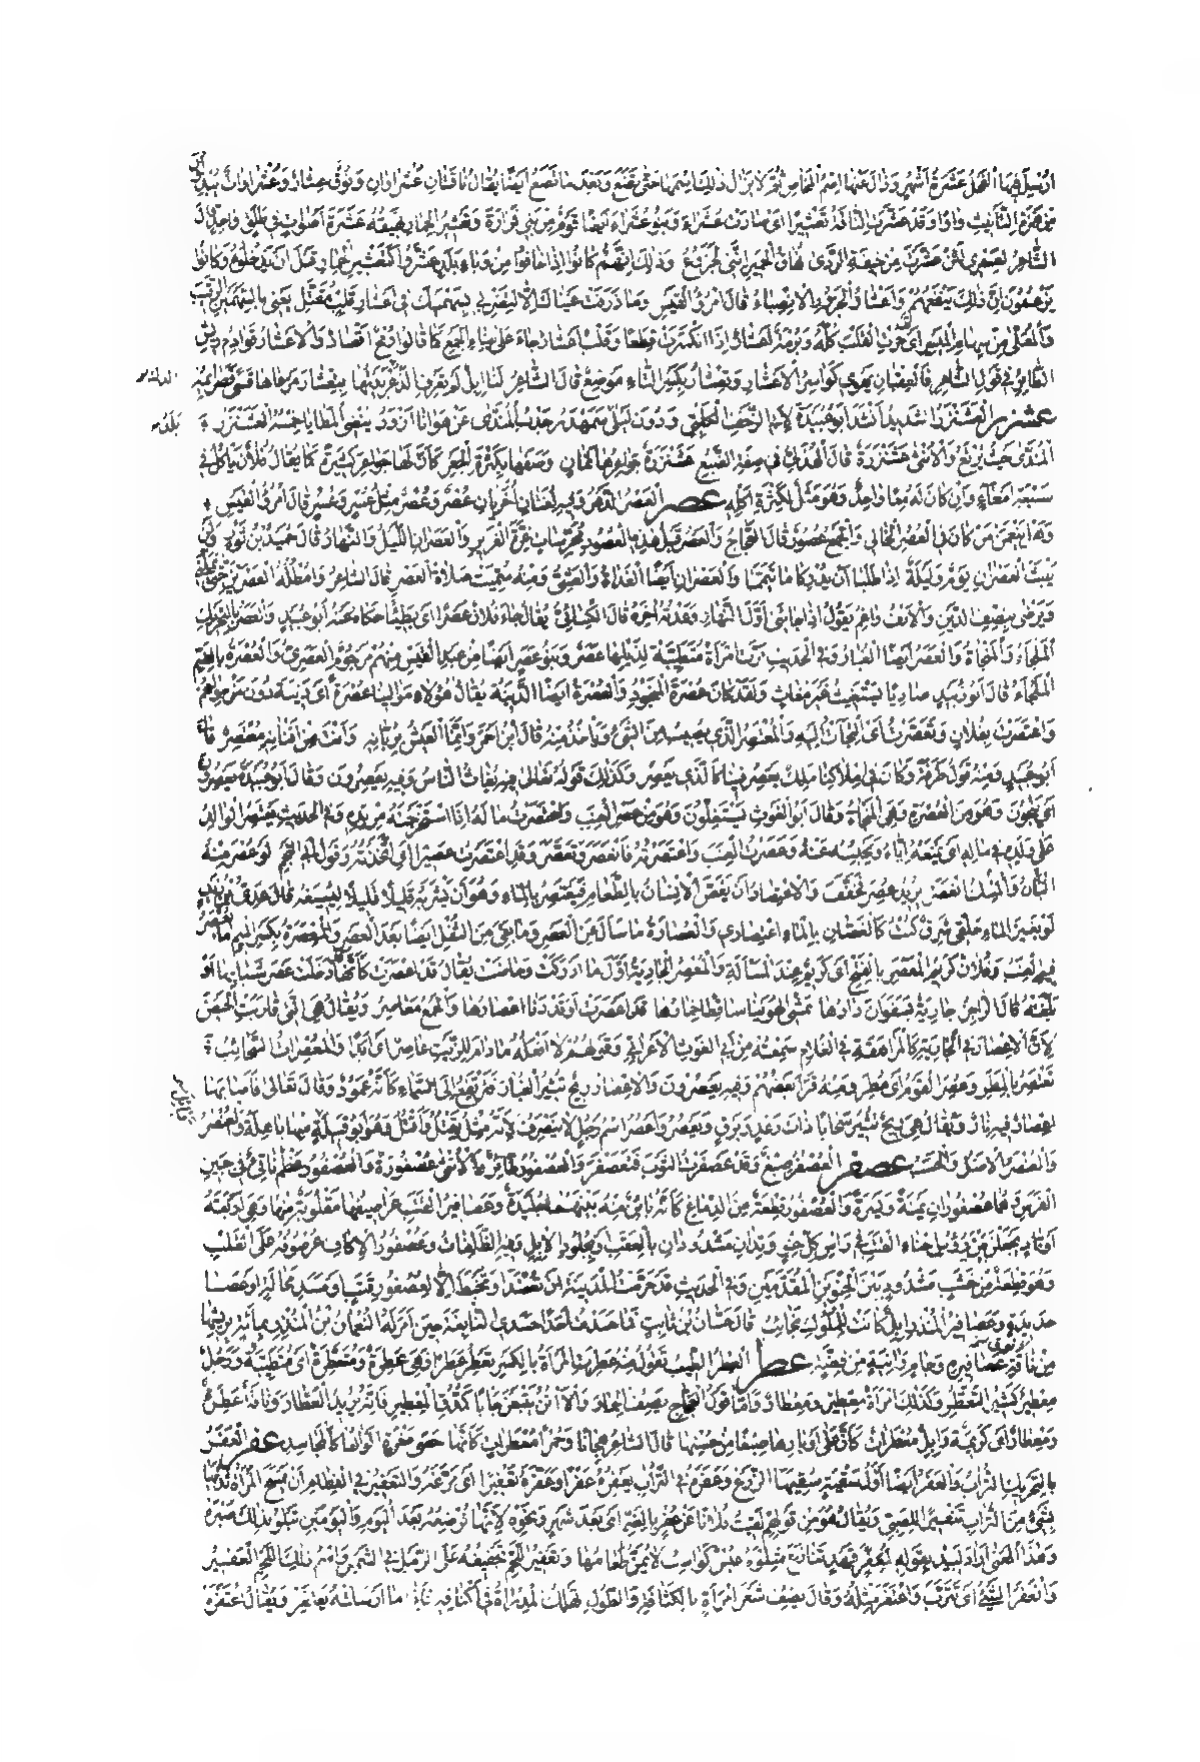 ارسل فيها الفحل عشرة اشهر وزال عنها اسم المخاض ثم لا يزال ذلك اسمها حتى تضع وبعد ما تضع ايضا يقال ناقتان عشراوان ونوق عشار وعشراوات يبدلون
من همزة التأنيث واوا وقد عشرت الناقة تعشيرا اى صارت عشراء وبنو عشراء ايضا قوم من بنى فزارة وتعشير الحمار نهيقه عشرة اصوات فى طلق واحد قال
الشاعر لعمرى لئن عشرت من خيفة الردى نهاق الحمير اننى لجزوع وذلك انهم كانوا اذا خافوا من وباء بلد عشروا كتعشير الحمار قبل ان يدخلوها وكانوا
يزعمون ان ذلك ينفعهم واعشار الجزور الانصباء قال امرؤ القيس وما ذرفت عيناك الا لتضربى بسهميك فى اعشار قلب مقتل يعنى بالسهمين الرقيب
والمعلى من سهام الميسر اى حزت القلب كله وبرمة اعشار اذا انكسرت قطعا وقلب اعشار جاء على بناء الجمع كما قالوا رمح اقصاد والاعشار قوادم ريش
الطائر فى قول الشاعر فالعقبان تهوى كواسر الاعشار وتعشار بكسر التاء موضع قال الشاعر لنا ابل لم تعرف الذعر بينها بتعشار مرعاها قسا فصرائمه
عشنزر العشنزر الشديد انشد ابو عبيدة لابى الزحف الكلينى ودون ليلى بلد سمهدر جدب المندى عن هوانا ازور ينضى المطايا خمسه العشنزر
المندى حيث يرتع والانثى عشنزرة قال الهذلى فى صفة الضبع عشنزرة جواعرها ثمان وصفها بكثرة الجعر كان لها جواعر كثيرة كما يقال فلان يأكل فى
سبعة امعاء وان كان له معا واحد وهو مثل لكثرة اكله عصر العصر الدهر وفيه لغتان اخريان عصر وعصر مثل عسر وعسر قال امرؤ القيس
وهل ينعمن من كان فى العصر الخالى والجمع عصور قال العجاج والعصر قبل هذه العصور مجرسات غرة الغرير والعصران الليل والنهار قال حميد بن ثور ولن
يلبث العصران يوم وليلة اذا طلبا ان يدركا ما تيمما والعصران ايضا الغداة والعشى ومنه سميت صلاة العصر قال الشاعر وامطله العصرين حتى يملنى
ويرضى بنصف الدين والانف راغم يقول اذا جاءنى اول النهار وعدته اخره قال الكسائى يقال جاء فلان عصرا اى بطيئا حكاه عنه ابو عبيد والعصر بالتحريك
الملجأ والمنجاة والعصر ايضا الغبار وفى الحديث مرت امرأة متطيبة لذيلها عصر وبنو عصر ايضا من عبد القيس منهم مرجوم العصرى والعصرة بالضم
الملجأ قال ابو زبيد صاديا يستغيث غير مغاث ولقد كان عصرة المنجود والعصرة ايضا الدنية يقال هؤلاء موالينا عصرة اى دنية دون من سواهم
واعتصرت بفلان وتعصرت اى التجأت اليه والمعتصر الذى يصيب من الشىء ويأخذ منه قال ابن احمر وانما العيش بربانه وانت من افنانه معتصر قال
ابو عبيد ومنه قول طرفة لو كان فى املاكنا ملك يعصر فينا كالذى يعصر وكذلك قوله تعالى فيه يغاث الناس وفيه يعصرون وقال ابو عبيدة يعصرون
اى ينجون وهو من العصرة وهى المنجاة وقال ابو الغوث يستغلون وهو من عصر العنب واعتصرت ماله اذا استخرجته من يده وفى الحديث يعتصر الوالد
على ولده فى ماله اى يمنعه اياه ويحبسه عنه وعصرت العنب واعتصرته فانعصر وتعصر وقد اعتصرت عصيرا اى اتخذته وقول ابى النجم لو عصر منه
البان والمسك انعصر يريد عصر فخفف والاعتصار ان يغص الانسان بالطعام فيعتصر بالماء وهو ان يشربه قليلا قليلا ليسيغه قال عدى بن زيد
لو بغير الماء حلقى شرق كنت كالغصان بالماء اعتصارى والعصارة ما سال عن العصر وما بقى من الثفل ايضا بعد العصر والمعصرة بكسر الميم ما يعصر
فيه العنب وفلان كريم المعصر بالفتح اى كريم عند المسألة والمعصر الجارية اول ما ادركت وحاضت يقال قد اعصرت كانها دخلت عصر شبابها او
بلغته قال الراجز جارية بسفوان دارها تمشى الهوينا ساقطا خمارها قد اعصرت او قد دنا اعصارها والجمع معاصر ويقال هى التى قاربت الحيض
لان الاعصار فى الجارية كالمراهقة فى الغلام سمعته من ابى الغوث الاعرابى وقولهم لا افعله ما دام للزيت عاصر اى ابدا والمعصرات السحائب
تعتصر بالمطر وعصر القوم اى مطروا ومنه قرأ بعضهم وفيه يعصرون والاعصار ريح تثير الغبار فيرتفع الى السماء كانه عمود وقال تعالى فاصابها
اعصار فيه نار ويقال هى ريح تثير سحابا ذات رعد وبرق ويعصر واعصر اسم رجل لا ينصرف لانه مثل يقتل واقتل وهو ابو قبيلة منها باهلة والعنصر
والعنصر الاصل والحسب عصفر العصفر صبغ وقد عصفرت الثوب فتعصفر والعصفور طائر والانثى عصفورة والعصفور عظم ناتئ فى جبين
الفرس وهما عصفوران يمنة ويسرة والعصفور قطعة من الدماغ كانه بائن منه بينهما جليدة وعصافير القتب عراصيفها مقلوبة منها وهى اربعة
اوتاد يجعلن بين رؤوس احناء القتب فى رأس كل حنو وتدان مشدودان بالعقب او بجلود الابل وفيه الظلفات وعصفور الاكاف عرصوفه على القلب
وهو قطعة من خشب مشدودة بين الحنوين المقدمين وفى الحديث قد حرمت المدينة ان تعضد او تخبط الا لعصفور قتب او مسد محالة او عصا
حديدة وعصافير المنذر ابل كانت للملوك نجائب قال حسان بن ثابت فما حسدت احدا حسدى النابغة حين امر له النعمان بن المنذر بمائة بريشها
من نوق عصافيره وحسام وانية من فضة عطر العطر الطيب تقول منه عطرت المرأة بالكسر تعطر عطرا فهى عطرة ومتعطرة اى متطيبة ورجل
معطير كثير التعطر وكذلك امرأة معطير ومعطار واما قول العجاج يصف الحمار والاتن يتبعن جأبا كمدق المعطير فانه يريد العطار وناقة عطرة
ومعطار اى كريمة وابل معطرات كان على اوبارها صبغا من حسنها قال الشاعر هجانا وحمرا معطرات كانها حصى مغرة الوانها كالمجاسد عفر العفر
بالتحريك التراب والعفر ايضا اول سقية سقيها الزرع وعفره فى التراب يعفره عفرا وعفره تعفيرا اى مرغه والتعفير فى الفطام ان تمسح المرأة ثديها
بشىء من التراب تنفيرا للصبى ويقال هو من قولهم لقيت فلانا عن عفر بالضم اى بعد شهر ونحوه لانها ترضعه بعد اليوم واليومين تبلو بذلك صبره
وهذا المعنى اراد لبيد بقوله لمعفر قهد تنازع شلوه غبس كواسب لا يمن طعامها وتعفير اللحم تجفيفه على الرمل فى الشمس واسم ذلك اللحم العفير
وانعفر الشىء اى تترب واعتفر مثله وقال يصف شعر امرأة بالكثافة والطول تهلك المدراة فى اكنافه واذا ما ارسلته يعتفر ويقال اعتفره